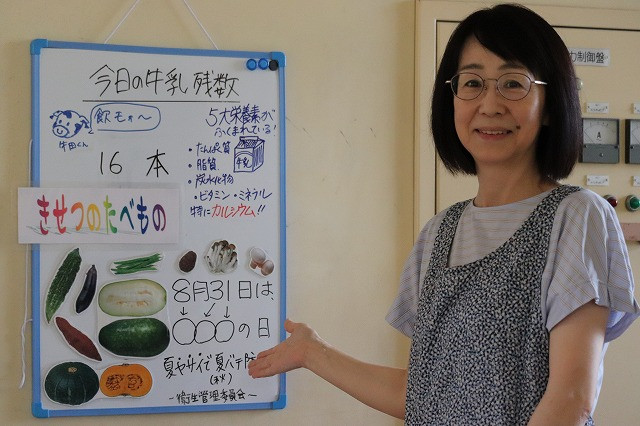 今日の牛乳残数
飲もぉ〜
牛田くん
16 本
5大栄養素が
ふくまれている!
・たんぱく質
・脂質
・炭水化物
・ビタミン・ミネラル
特にカルシウム!!
牛乳
きせつのたべもの
8月31日は、
○○○の日
夏ヤサイで夏バテ防
(秋)
-衛生管理委員会-
力制御盤
A